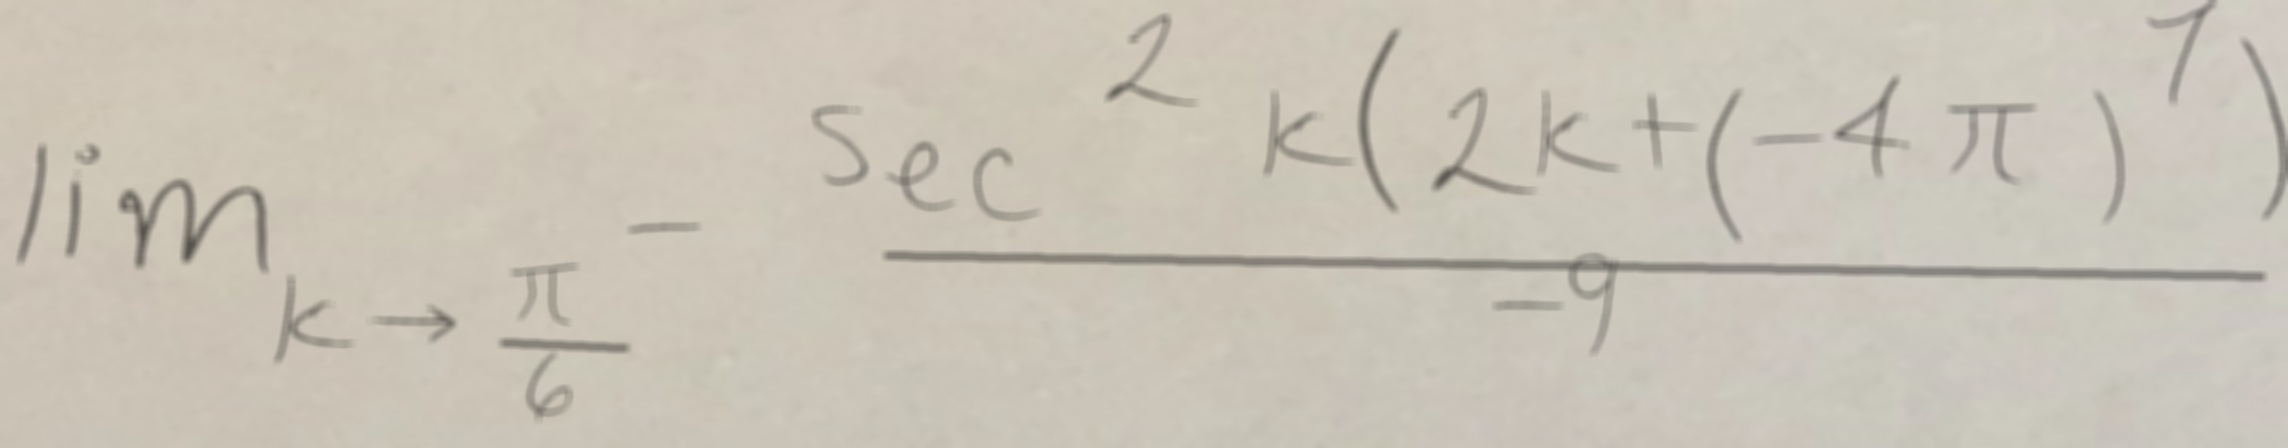 \lim_{k \to \frac{\pi}{6}^-} \frac{\sec^2 k(2k+(-4\pi)^7)}{-9}